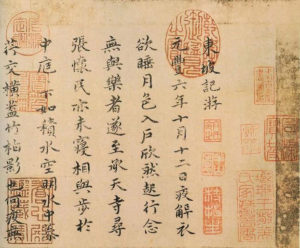 東坡記游
元豐六年十月十二日夜解衣
欲睡月色入戶欣然起行念
無與樂者遂至承天寺尋
張懷民亦未寢相與步於
中庭下如積水空明水中藻
荇交橫蓋竹柏影也何夜無